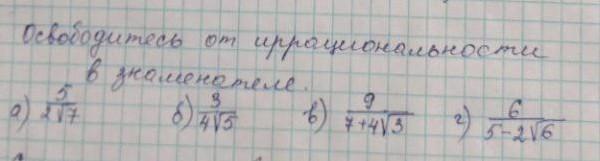 Освободитесь от иррациональности
в знаменателе.
а) 5/(2√7) б) 3/(4√5) в) 9/(7+4√3) г) 6/(5-2√6)